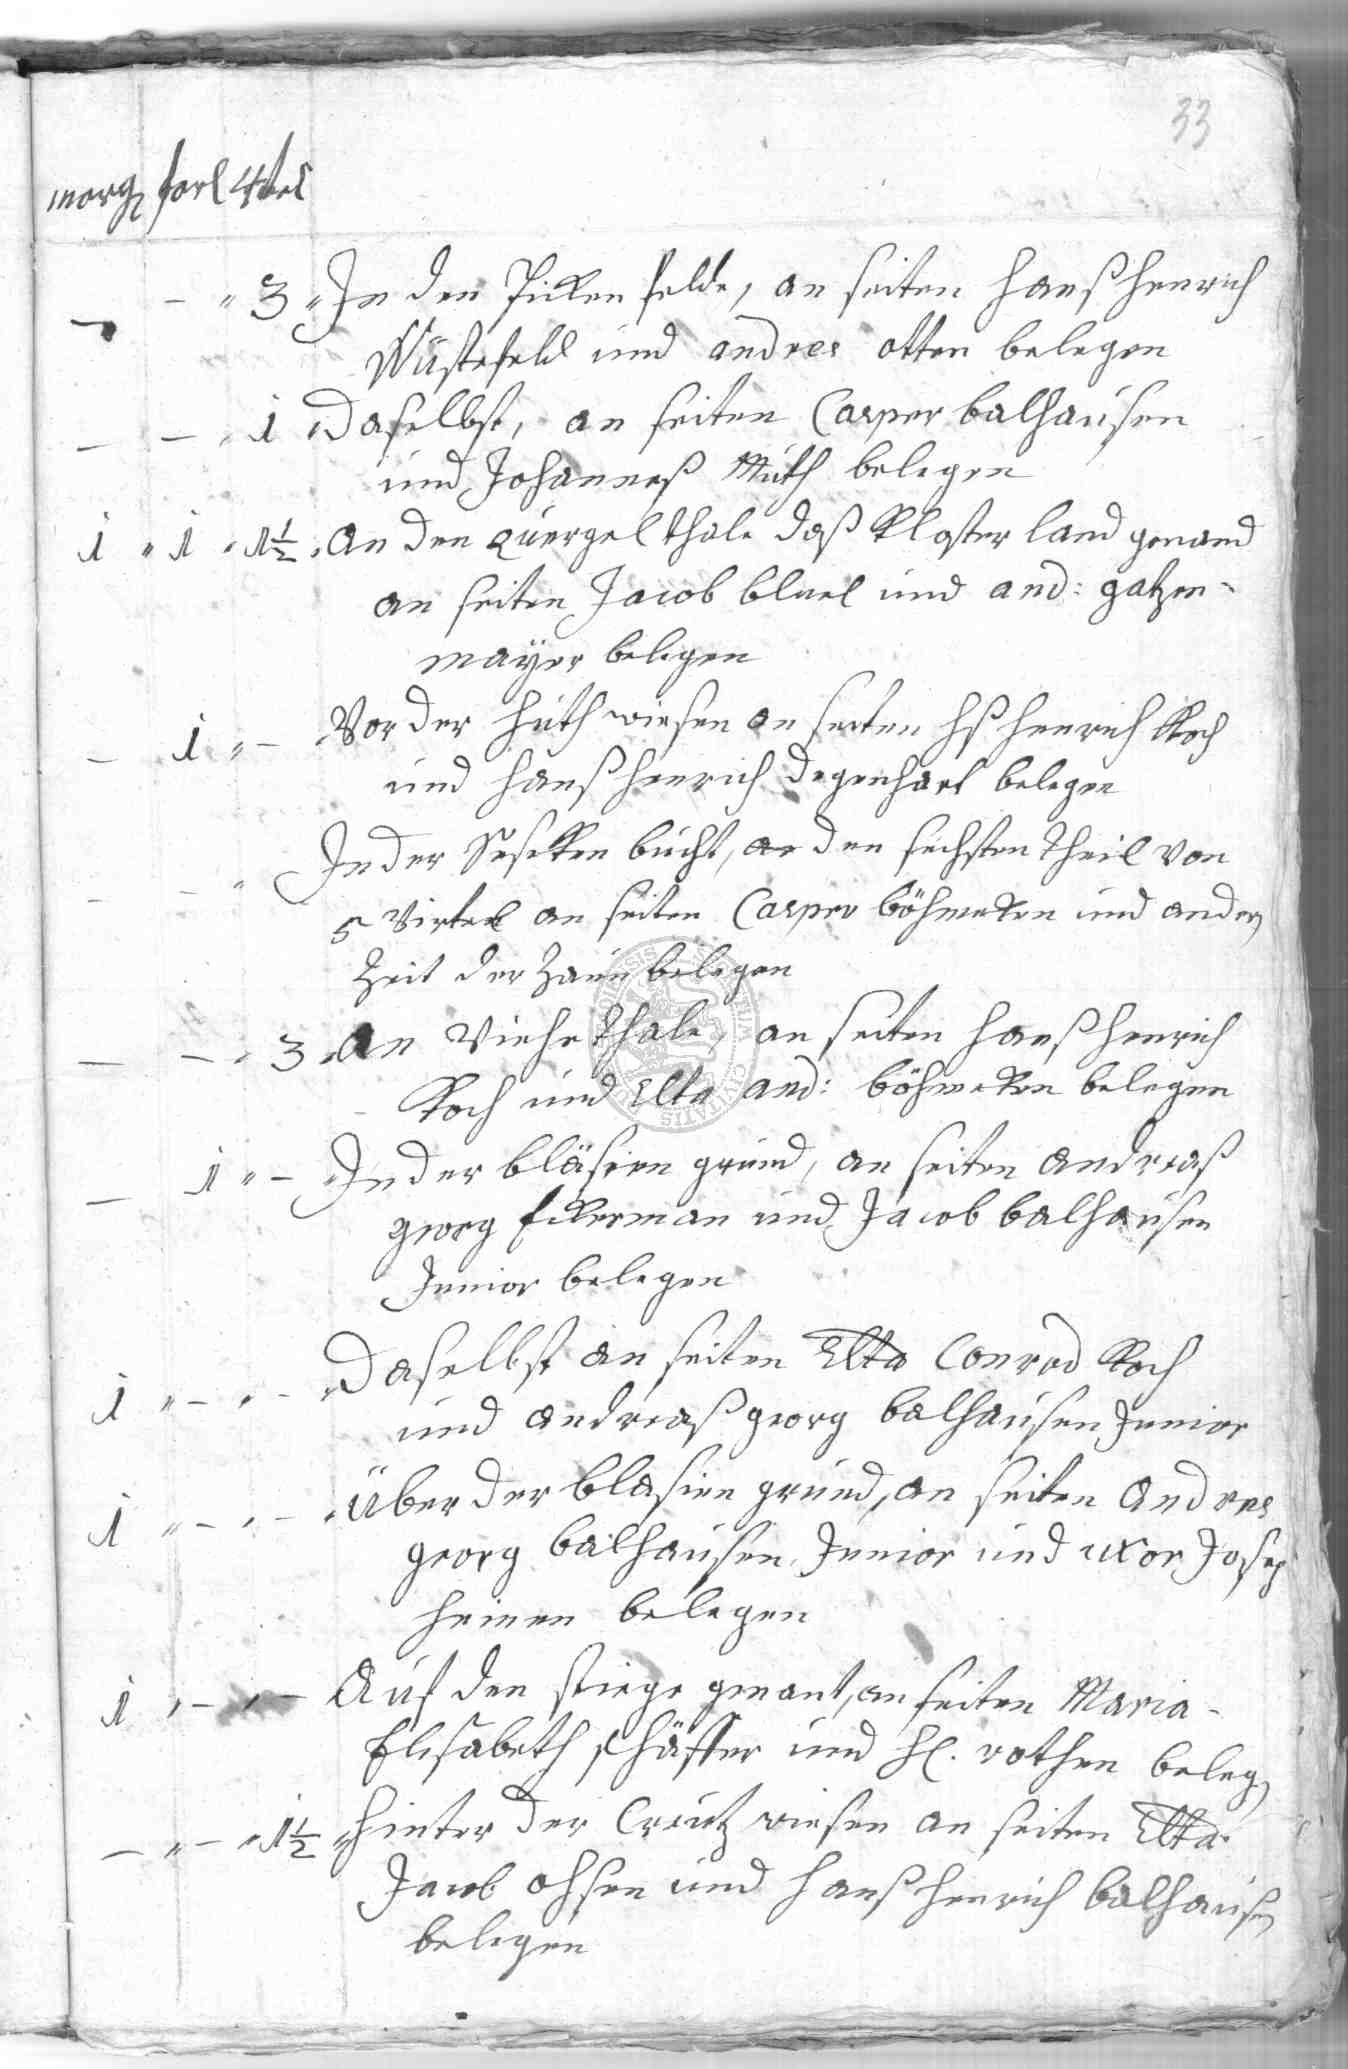 33
morg forl 4tel
- " 3 " In den Picken felde, an seiten Hanß Henrich
Wüstefeld und andres otten belegen
- - " 1 Daselbst, an seiten Casper balhausen
und Johanneß Müth belegen
1 " 1 " 1 1/2 " An den quergel thale daß Kloster land genand
an seiten Jacob und and: gatzen-
mayer belegen
- 1 " - Vor der Huth wiesen an seiten Hß Henrich Koch
und Hanß Henrich Degenhart belegen
- - " In der bucht, den sechsten theil von
5 Virtel an seiten Casper böhmeken und ander
Zeit der Zaun belegen
- - " 3 " An Viehe thale, an seiten Hanß Henrich
Koch und Elta and: böhmeken belegen
- 1 " - " In der bläsien grund, an seiten Andreaß
georg Eckerman und Jacob balhausen
Junior belegen
1 " - " - " Daselbst an seiten Elta Conrad Koch
und Andreaß georg balhausen Junior
1 " - " - " Über der blasien grund, an seiten Andres
georg balhausen Junior und uxor Josep
Heinen belegen
1 " - " - Auf den stiege genant, an seiten Maria-
Elisabeth schäffer und Hl. rothen beleg
- " - " 1 1/2 " Hinter der Creutz wiesen an seiten Elta
Jacob ohsen und Hanß Henrich balhausen
belegen